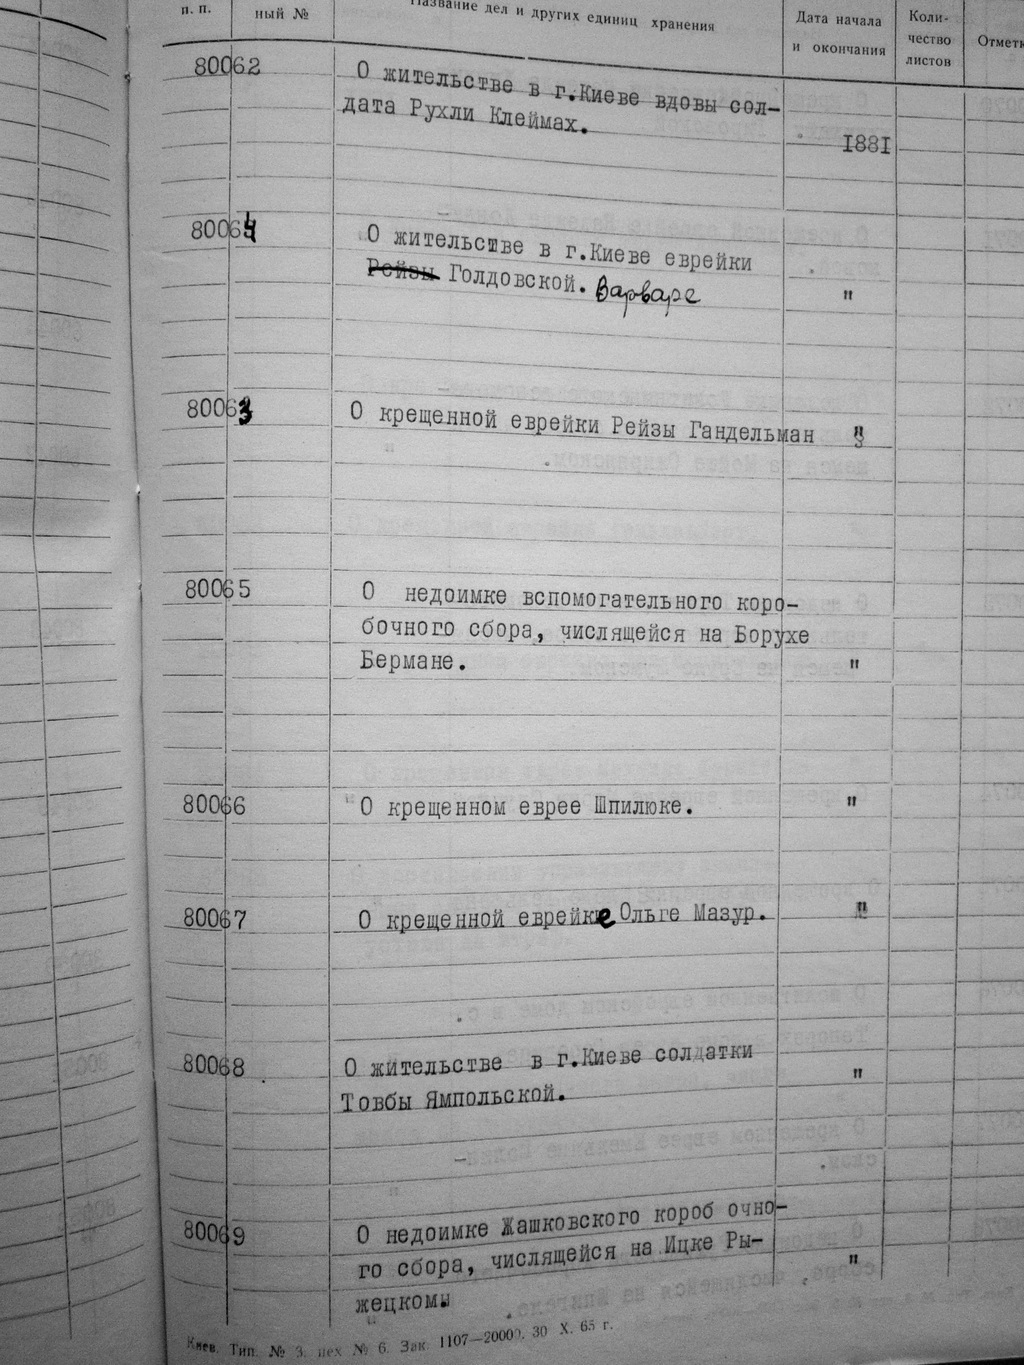 п. п.
ный №
Название дел и других единиц хранения
Дата начала
и окончания
Коли-
чество
листов
80062
О жительстве в г.Киеве вдовы сол-
дата Рухли Клеймах.
1881
80064
О жительстве в г.Киеве еврейки
Рейзы Голдовской. Варваре
"
80063
О крещенной еврейки Рейзы Гандельман "
80065
О недоимке вспомогательного коро-
бочного сбора, числящейся на Борухе
Бермане.
"
80066
О крещенном еврее Шпилюке.
"
80067
О крещенной еврейке Ольге Мазур.
"
80068
О жительстве в г.Киеве солдатки
Товбы Ямпольской.
"
80069
О недоимке Жашковского короб очно-
го сбора, числящейся на Ицке Ры-
жецком.
"
Киев. Тип. № 3. цех № 6. Зак. 1107—20000. 30 X. 65 г.